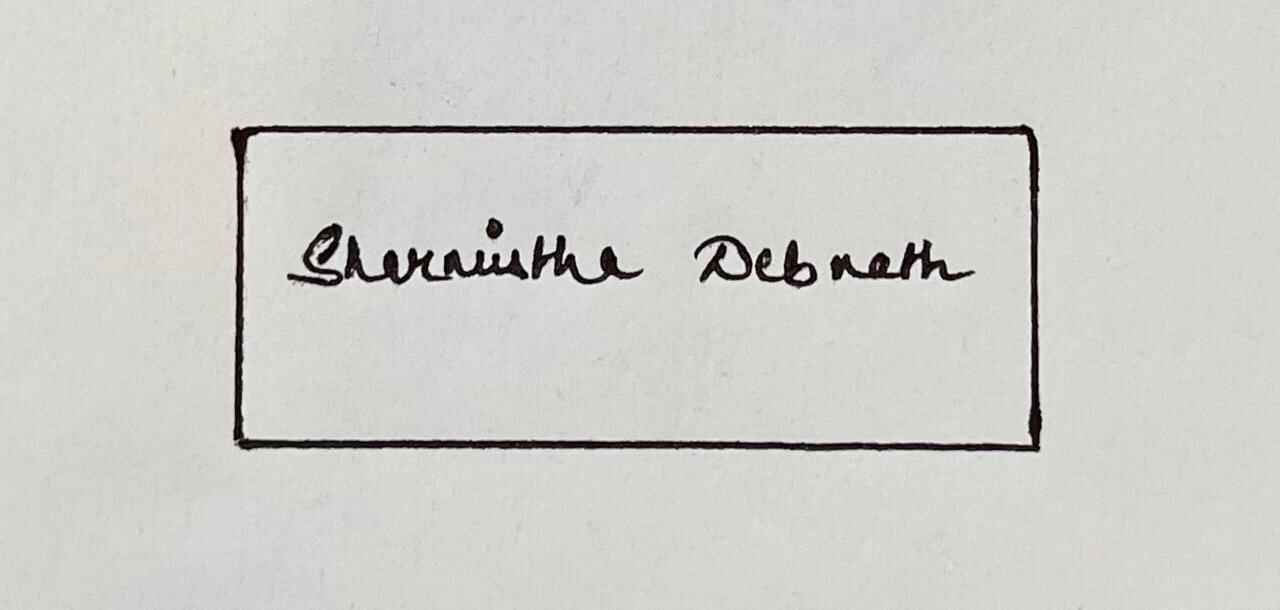 Sharmistha Debnath